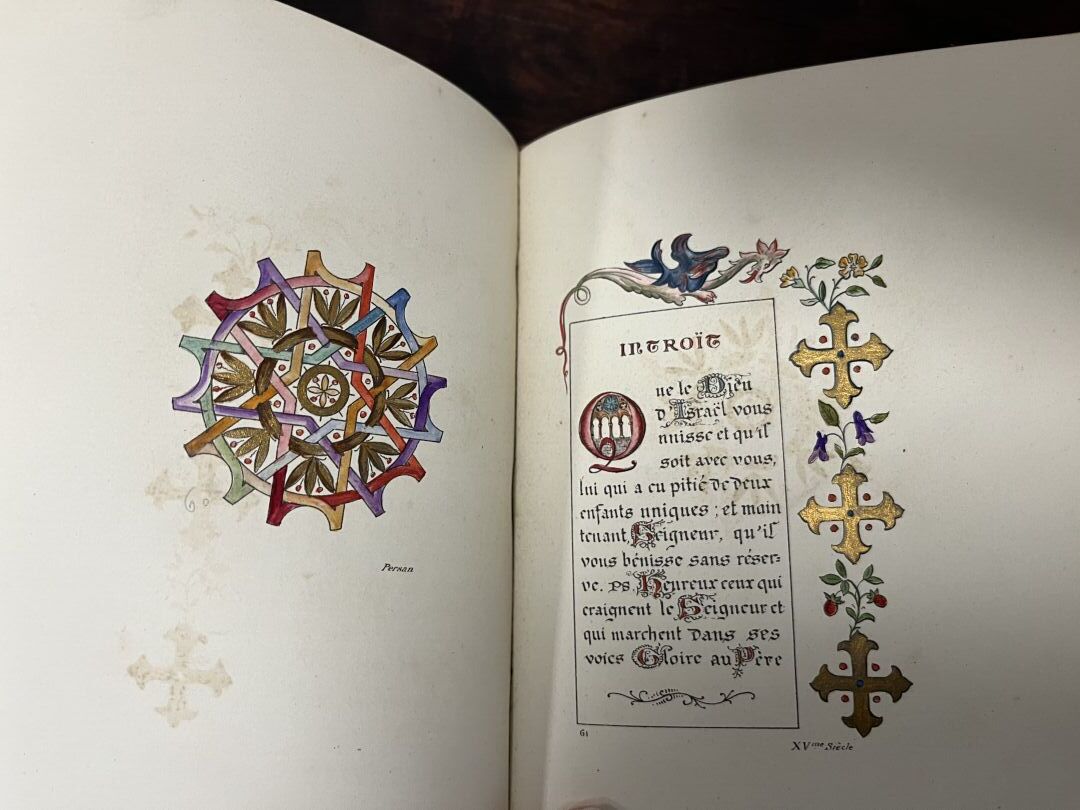 60
Persan
INTROÏT
Que le Dieu
d'Israël vous
unisse et qu'il
soit avec vous,
lui qui a eu pitié de deux
enfants uniques ; et main
tenant, Seigneur, qu'il
vous bénisse sans réser-
ve. PS. Heureux ceux qui
craignent le Seigneur et
qui marchent dans ses
voies Gloire au Père
61
XVme Siècle